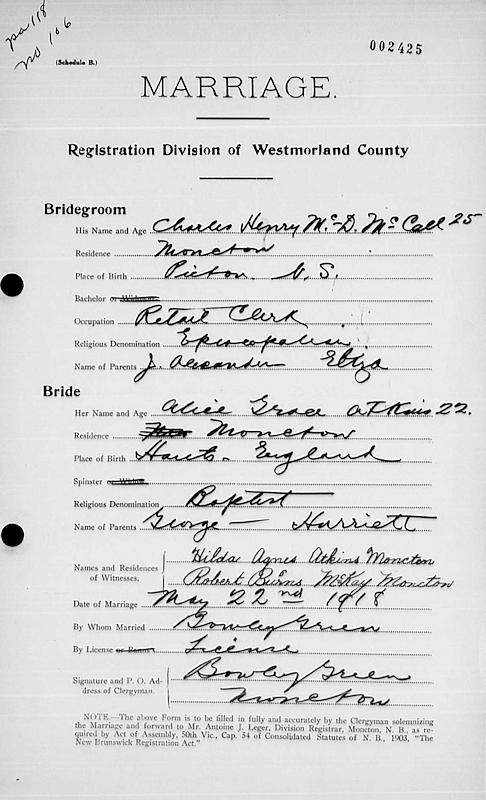 pa 118
no 106
(Schedule B.)
002425
MARRIAGE.
Registration Division of Westmorland County
Bridegroom
His Name and Age Charles Henry McD. McCall 25
Residence Moncton
Place of Birth Pictou. N. S.
Bachelor or Widower
Occupation Retail Clerk
Religious Denomination Episcopalian
Name of Parents J. Alexander Eliza
Bride
Her Name and Age Alice Grace Atkins 22.
Residence Moncton
Place of Birth Hants. England
Spinster or Widow
Religious Denomination Baptist
Name of Parents George — Harriett
Names and Residences of Witnesses, Hilda Agnes Atkins Moncton
Robert Burns McKay Moncton
Date of Marriage May 22nd 1918
By Whom Married Bowley Green
By License or Banns License
Signature and P. O. Ad- Bowley Green
dress of Clergyman. Moncton
NOTE.—The above Form is to be filled in fully and accurately by the Clergyman solemnizing
the Marriage and forward to Mr. Antoine J. Leger, Division Registrar, Moncton, N. B., as re-
quired by Act of Assembly, 50th Vic., Cap. 54 of Consolidated Statutes of N. B., 1903, "The
New Brunswick Registration Act."